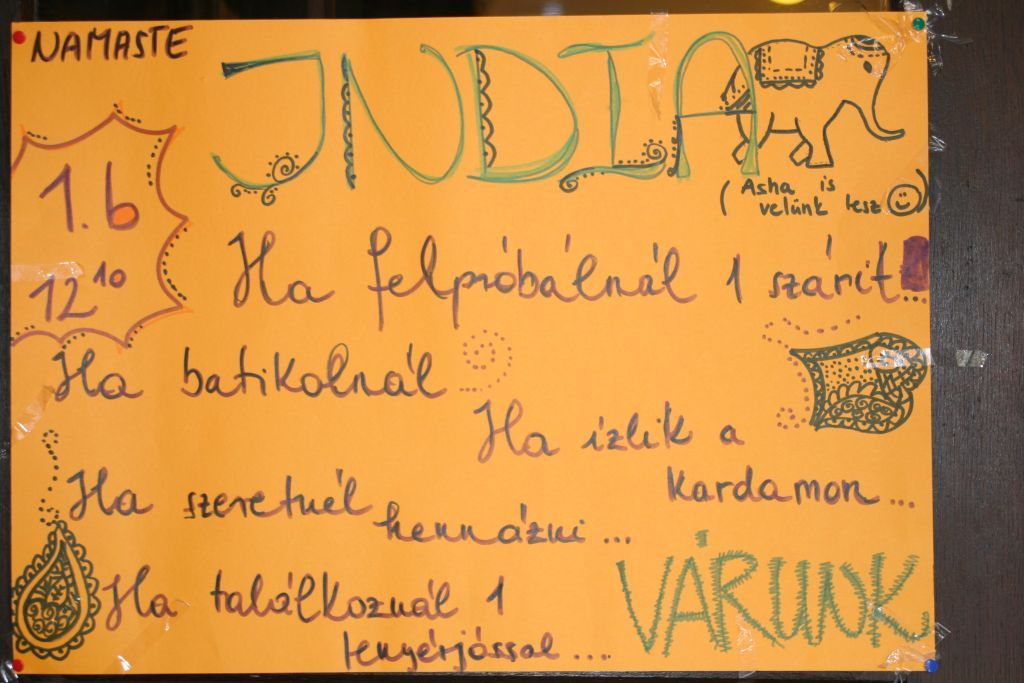 NAMASTE
INDIA
1.b
12¹⁰
(Asha is
velünk lesz ☺)
Ha felpróbálnál 1 szárit...
Ha batikolnál
Ha ízlik a
kardamon...
Ha szeretnél
hennázni...
Ha találkoznál 1
tenyérjóssal....
VÁRUNK